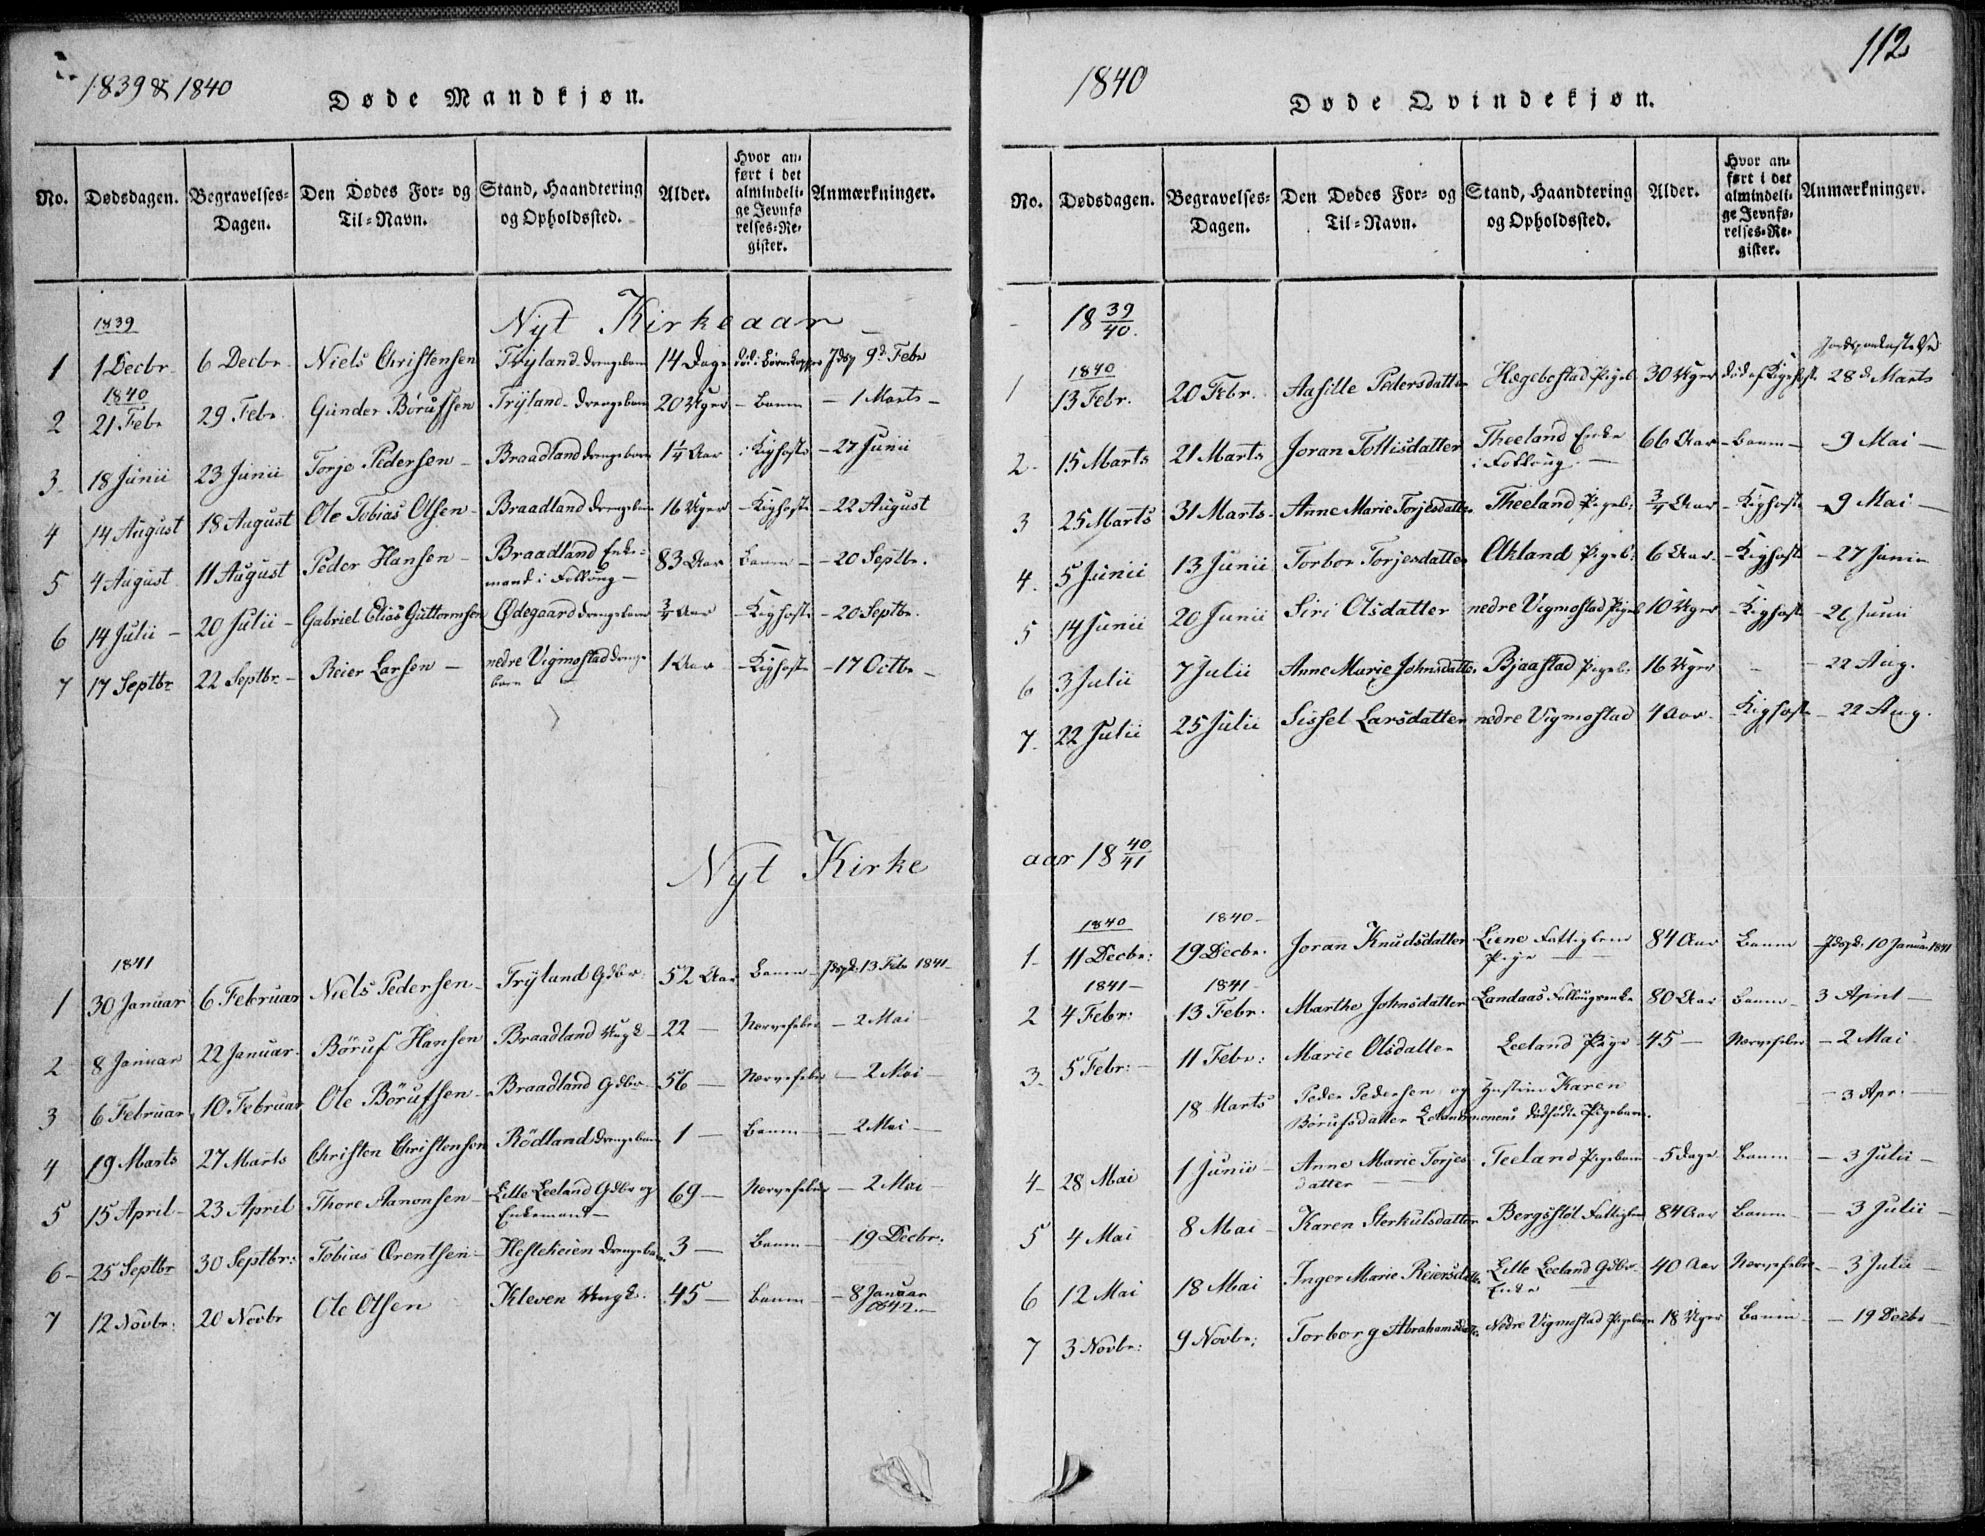 1839 & 1840
Døde Mandkjøn.
No. Dødsdagen. Begravelses-Dagen. Den Dødes For- og Til-Navn. Stand, Haandtering og Opholdssted. Alder. Hvor anført i det almindelige Jevnførelses-Register. Anmærkninger.
1839
Nyt Kirkeaar
1 1 Decbr 6 Decbr Niels Christensen Tryland Drengebarn 14 Dage Jdsp 9d Febr
1840
2 21 Febr 29 Febr. Gunder Börufsen Tryland Drengebarn 20 Uger 1 Marts
3 18 Junii 23 Junii Torje Pedersen Braadland Drengebarn 1 1/4 Aar i Kighoste 27 Junii
4 14 August 18 August Ole Tobias Olsen Braadland Drengebarn 16 Uger Kighoste 22 August
5 4 August 11 August Peder Hansen Braadland Enke-
mand i Folloug 83 Aar 20 Septbr.
6 14 Julii 20 Julii Gabriel Elias Guttormsen Ødegaard Drengebarn 3/4 Aar Kighoste 20 Septbr.
7 17 Septbr 22 Septbr Reier Larsen nedre Vigmostad Drenge
barn 1 Aar Kighoste 17 Octbr
Nyt Kirke
1841
1 30 Januar 6 Februar Niels Pedersen Tryland Gdbr. 52 Aar Jdsp. 13 Febr 1841
2 8 Januar 22 Januar. Böruf Hansen Braadland Ungk 22 Nervefeber 2 Mai
3 6 Februar 10 Februar Ole Börufsen Braadland Gdbr 56 Nervefeber 2 Mai
4 19 Marts 27 Marts Christen Christensen Rödland Drengebarn 1 2 Mai
5 15 April 23 April Thore Aanonsen Lille Leeland Gdbr og
Enkemand 69 Nervefeber 2 Mai
6 25 Septbr 30 Septbr: Tobias Ørentsen Hesteheien Drengebarn 3 19 Decbr:
7 12 Novbr: 20 Novbr Ole Olsen Kleven Ungk. 45 8 Januar
1842
112
1840
Døde Qvindekjøn.
No. Dødsdagen. Begravelses-Dagen. Den Dødes For- og Til-Navn. Stand, Haandtering og Opholdssted. Alder. Hvor anført i det almindelige Jevnførelses-Register. Anmærkninger.
18 39/40.
1840
1 13 Febr. 20 Febr. Aasille Pedersdatter Hægebostad Pigeb. 30 Uger død af Kighoste 28d Marts
2 15 Marts 21 Marts Joran Tollisdatter Theeland Enke
i Folloug 66 Aar 9 Mai
3 25 Marts 31 Marts Anne Marie Torjesdatter Theeland Pigeb: 3/4 Aar Kighoste 9 Mai
4 5 Junii 13 Junii Torbor Torjesdatter Okland Pigeb: 6 Aar Kighoste 27 Junii
5 14 Junii 20 Junii Siri Olsdatter nedre Vigmostad Pigeb 10 Uger Kighoste Junii
6 3 Julii 7 Julii Anne Marie Johnsdatter Bjaastad Pigeb: 16 Uger 22 Aug.
7 22 Julii 25 Julii Sissel Larsdatter nedre Vigmostad 4 Aar Kighoste 22 Aug.
aar 18 40/41
1840 1840
1 11 Decbr: 19 Decbr. Joran Knudsdatter Liene Fattiglem
Pige 84 Aar Jdsp. 10 Januar 1841
1841 1841
2 4 Febr: 13 Febr. Marthe Johnsdatter Landaas Follougsenke 80 Aar 3 April
3 5 Febr: 11 Febr: Marie Olsdatter Leeland Pige 45 Nervefeber 2 Mai
18 Marts Peder Pedersen og Hustru Karen
Börufsdatter dödfödte Pigebarn. 3 Apr:
4 28 Mai 1 Junii Anne Marie Torjes
datter Teeland Pigebarn 5 Dage 3 Julii
5 4 Mai 8 Mai Karen Sterkulsdatter Bergsstøl Fattiglem 84 Aar 3 Julii
6 12 Mai 18 Mai Inger Marie Reiersdatter Lille Leeland Gdbr
Enke 40 Aar Nervefeber 3 Julii
7 3 Novbr: 9 Novbr: Torborg Abrahamsdatter Nedre Vigmostad Pigebarn 18 Uger 19 Decbr